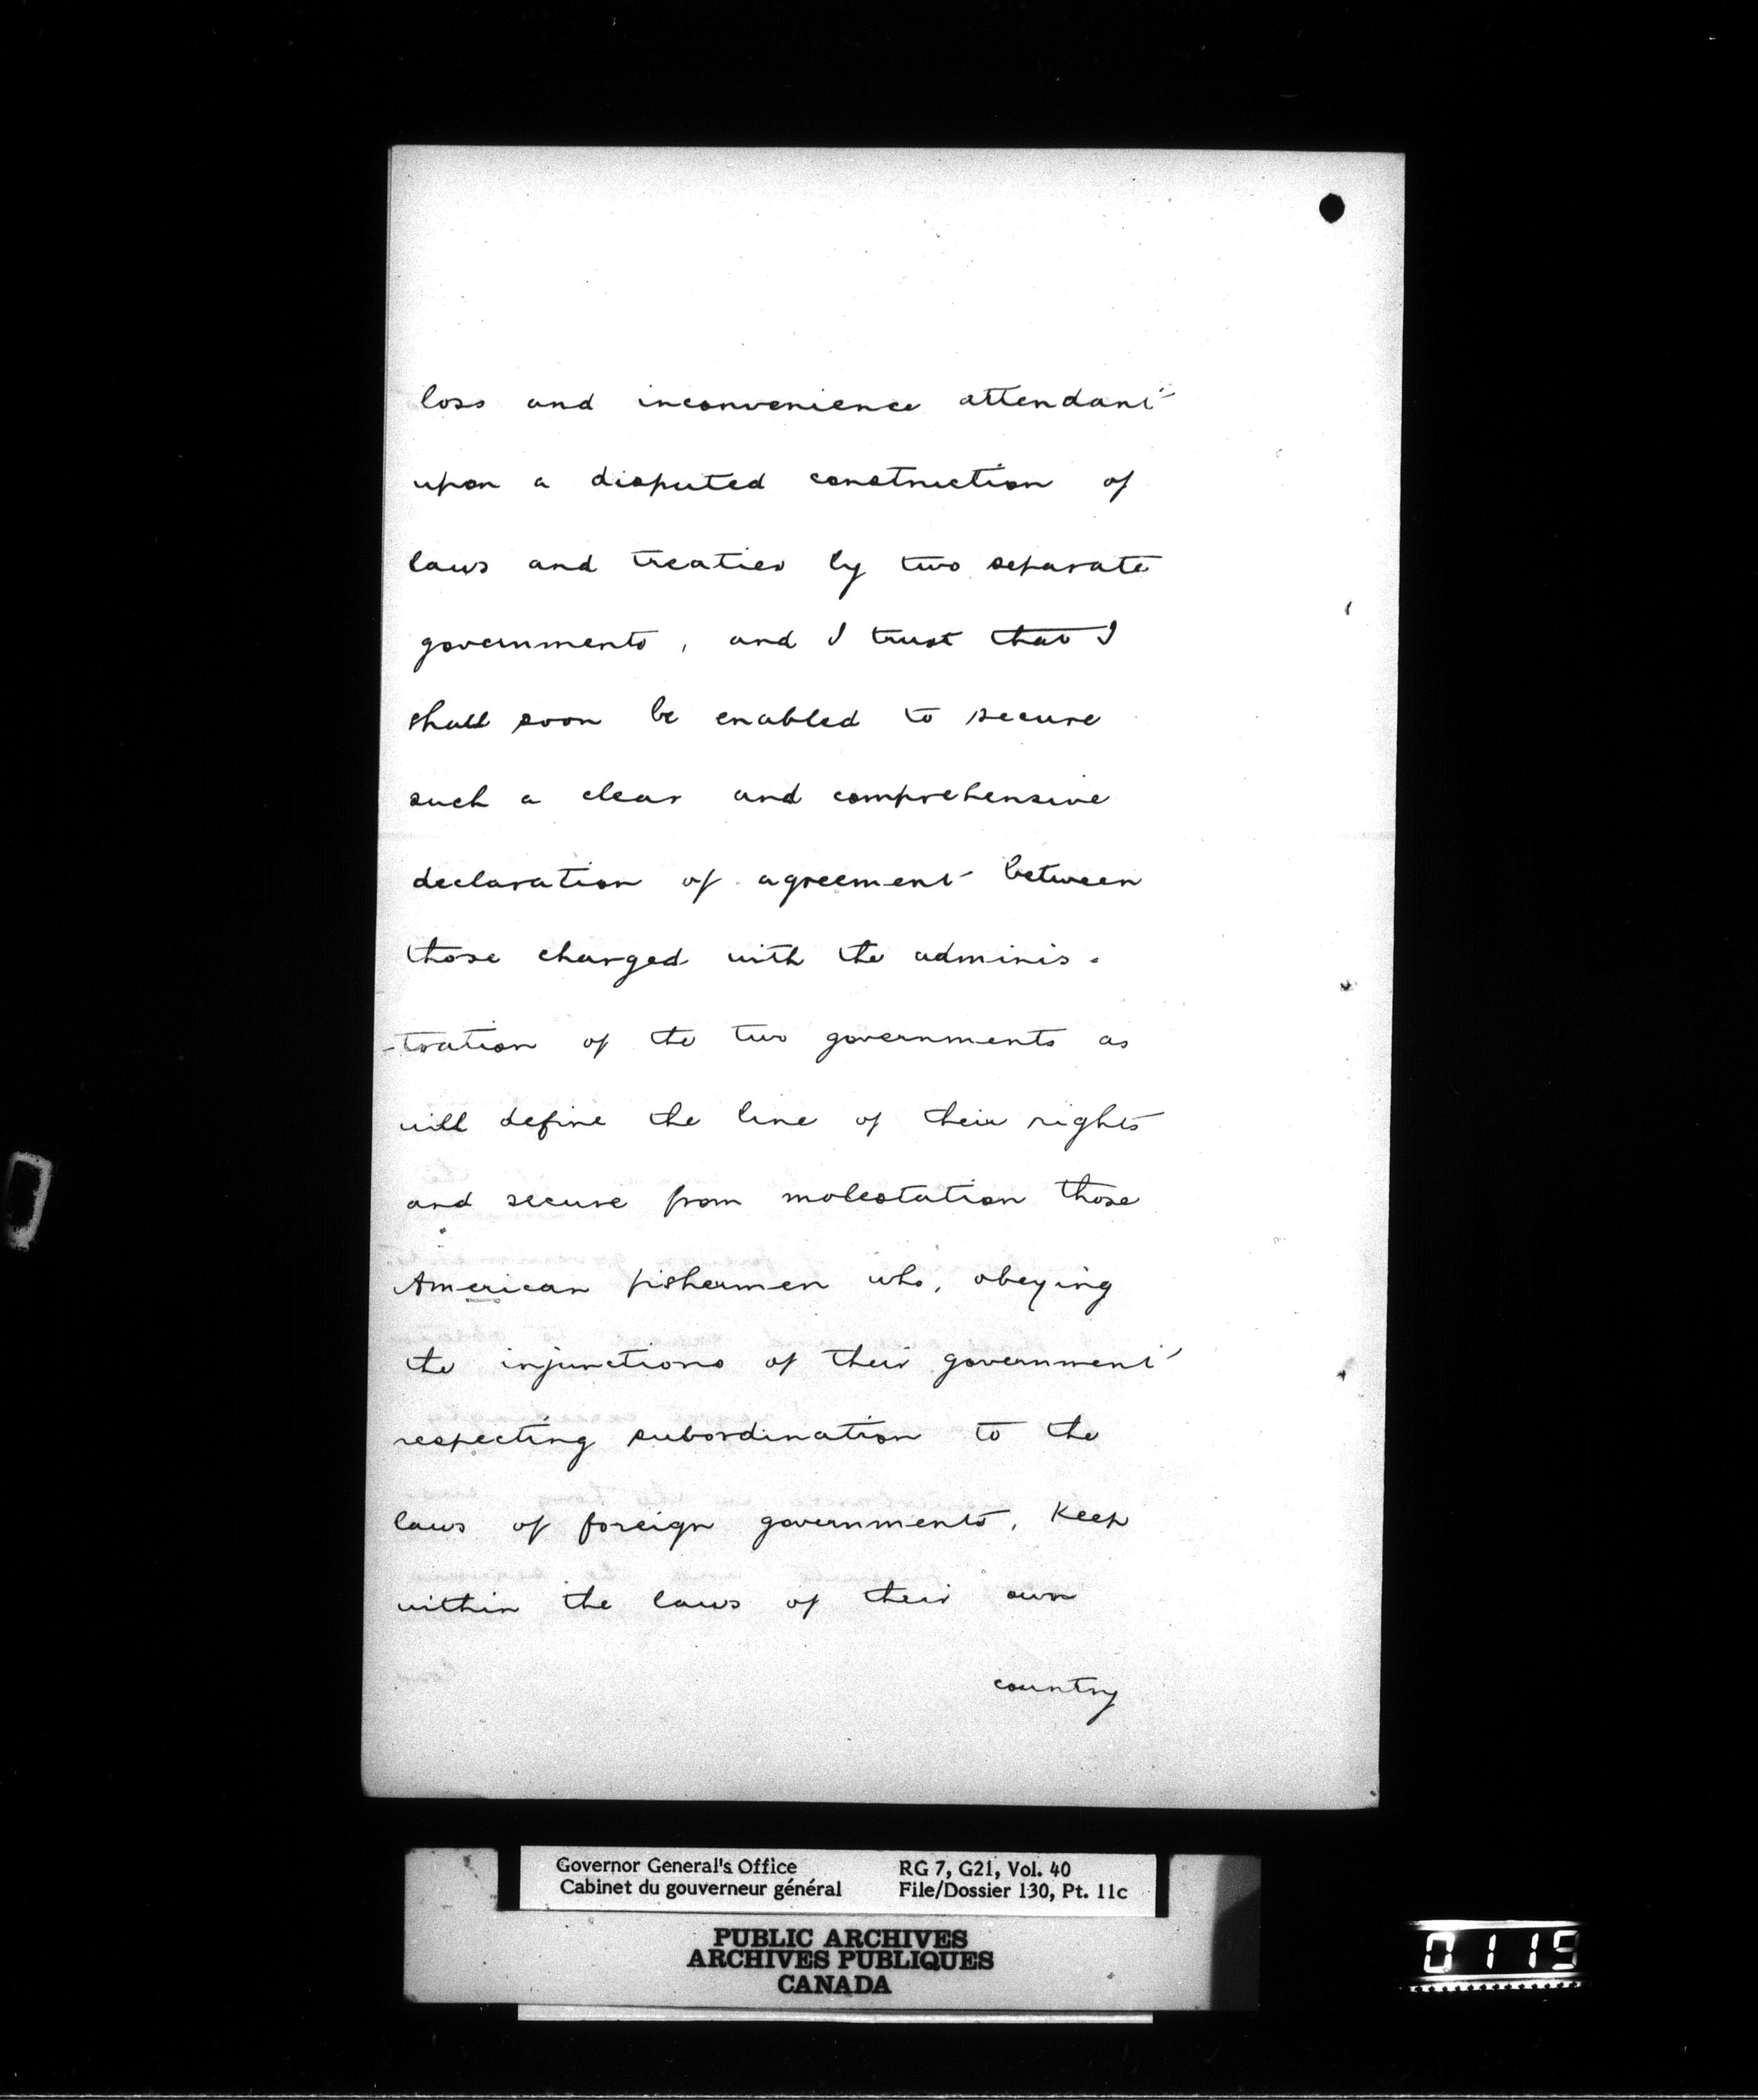 loss and inconvenience attendant
upon a disputed construction of
laws and treaties by two separate
governments, and I trust that I
shall soon be enabled to secure
such a clear and comprehensive
declaration of agreement between
those charged with the adminis-
-tration of the two governments as
will define the line of their rights
and secure from molestation those
American fishermen who, obeying
the injunctions of their government
respecting subordination to the
laws of foreign governments, keep
within the laws of their own
country
Governor General's Office
Cabinet du gouverneur général
RG 7, G21, Vol. 40
File/Dossier 130, Pt. 11c
PUBLIC ARCHIVES
ARCHIVES PUBLIQUES
CANADA
0115